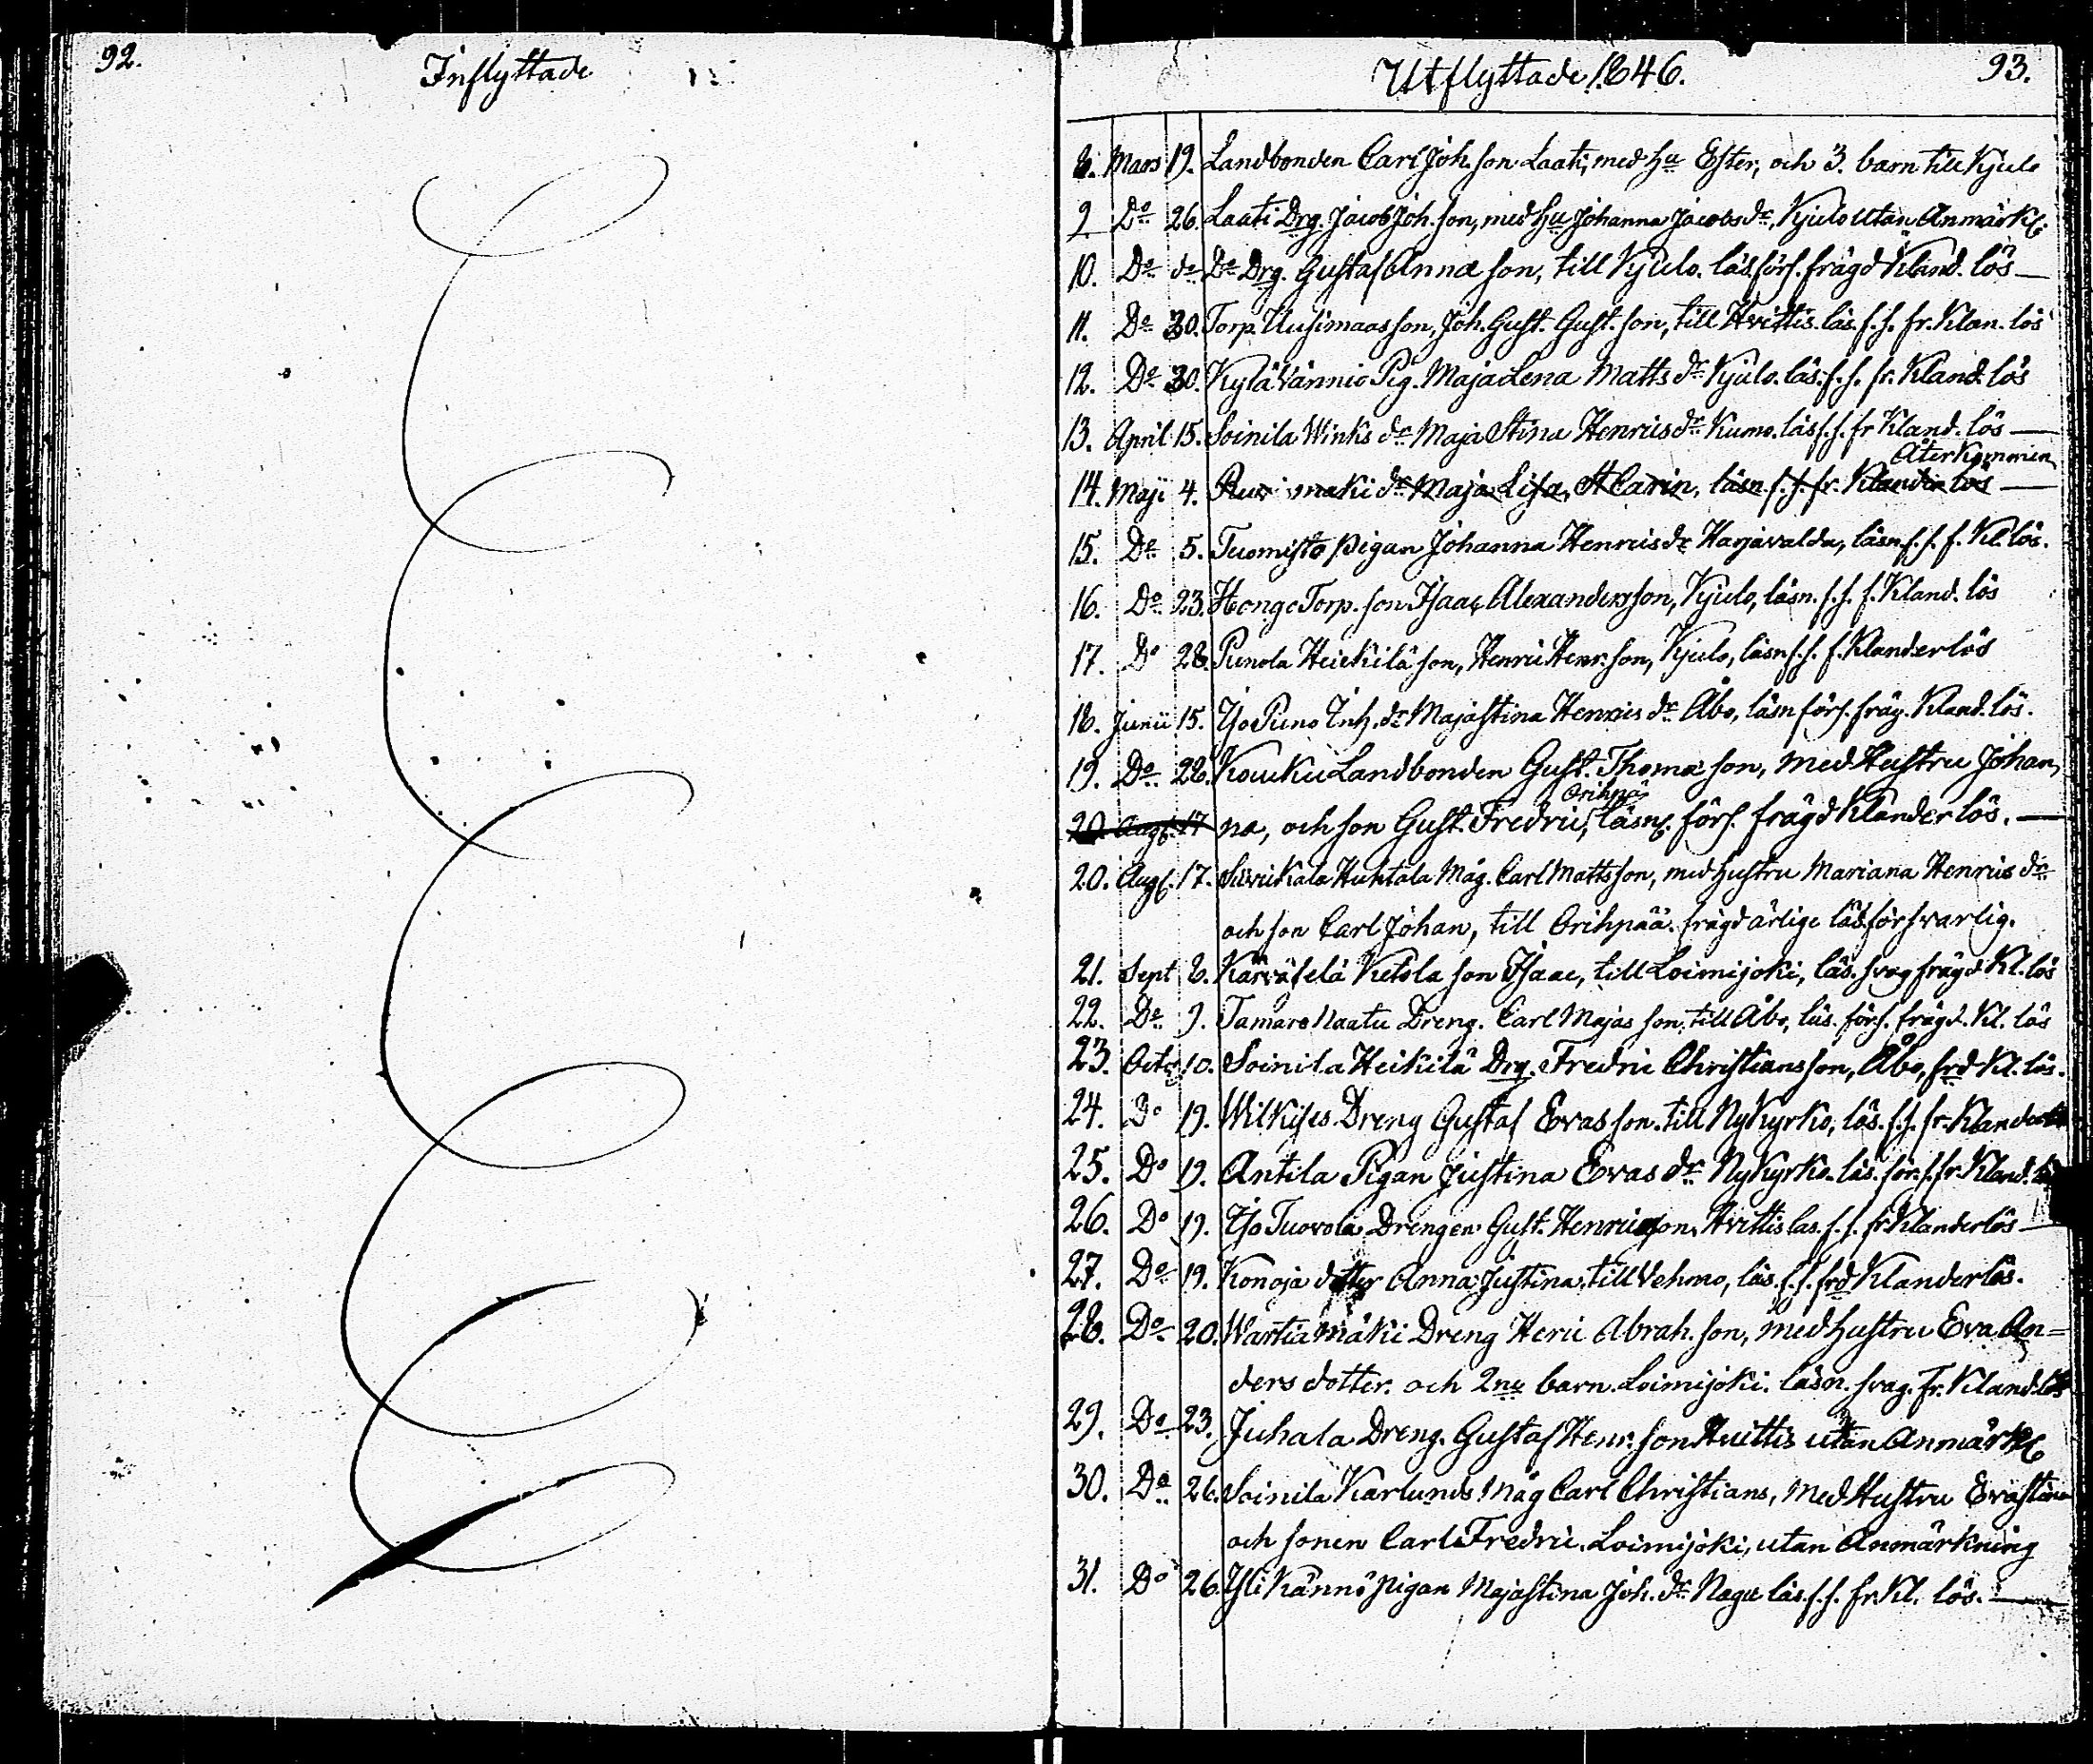 92.
Inflyttade
Utflyttade 1846.
93.
8. Mars 19. Landbonden Carl Joh. son Laati, med hu Ester, och 3. barn till Kjulo
9. Do 26. Laati Drg. Jacob Joh. son, med hu Johanna Jacobs dr, Kjulo utan Anmärk.
10. Do do Do Drg. Gustaf Annæ son, till Kjulo. läs. förs. frägd Kland. lös —
11. Do 30. Torp. Uusimaas son, Joh. Gust. Gust. son, till Hvittis. läs. f. f. fr. Klan. lös
12. Do 30. Kylä Vännio Pig. Maja Lena Matts dr Kjulo. läs. f. f. fr. Kland. lös
13. April 15. Soinila Winks dr Maja Stina Henrics dr Kumo. läs f. f. fr Kland. lös —
Återkommen
14. Maji 4. maki dr Maja Lisa, H Carin, läsn. f. f. fr. Klander lös —
15. Do 5. Tuomisto pigan Johanna Henrics dr Harjavalda, läsn. f. f. f. Kl. lös.
16. Do 23. Hongo Torp. son Isaac Alexandersson, Kjulo, läsn. f. f. f. Kland. lös
17. Do 28. Punola Heickilä son, Henric Henr. son, Kjulo, läsn f. f. f. Klander lös
18. Junii 15. Iso Puno Inh. dr Maja Stina Henrics dr Åbo, läsn förs. fräg. Kland. lös.
19. Do 28. Kouku Landbonden Gust. Thomæ son, med Hustru Johan,
Orihpä
20. Aug. 17 na, och son Gust. Fredric, läsn. förs. frägd Klander lös. —
20. Aug. 17. Huhtala Måg. Carl Mattsson, med hustru Mariana Henrics dr
och son Carl Johan, till Orihpää. frägd ärlige läs försvarlig.
21. Sept 8. Kärväselä Ketola son Isaac, till Loimijoki, läs. svag frägd Kl. lös
22. Do 9. Tamare Naatu Dreng. Carl Majas son, till Åbo, läs. förs. frägd. Kl. lös
23. Octo 10. Soinila Heikilä Drg. Fredric Christians son, Åbo, frd Kl. lös.
24. Do 19. Wilkises Dreng Gustaf Evas son. till Nykyrko, läs. f. f. fr. Klander
25. Do 19. Antila Pigan Justina Evas dr Nykyrko. läs. för. f. fr. Kland.
26. Do 19. Iso Tuovola Drengen Gust. Henricsson, Hvittis las. f. f. fr. Klander lös —
27. Do 19. Konoja dotter Anna Justina, till Vehmo, läs. f. f. frd Klander lös.
28. Do 20. Wartia mäki Dreng Heric Abrah. son, med hustru Eva An=
ders dotter. och 2ne barn. Loimijoki. läsn. svag. fr. Kland. lös
29. Do 23. Juhala Dreng. Gustaf Henr. son Huittis utan Anmärk
30. Do 26. Soinila Karlunds Måg Carl Christians, Med Hustru Evastina
och sonen Carl Fredric. Loimijoki, utan Anmärkning
31. Do 26. Isli Kännö pigan Majastina Joh. dr Nagu läs. f. f. fr. Kl. lös. —